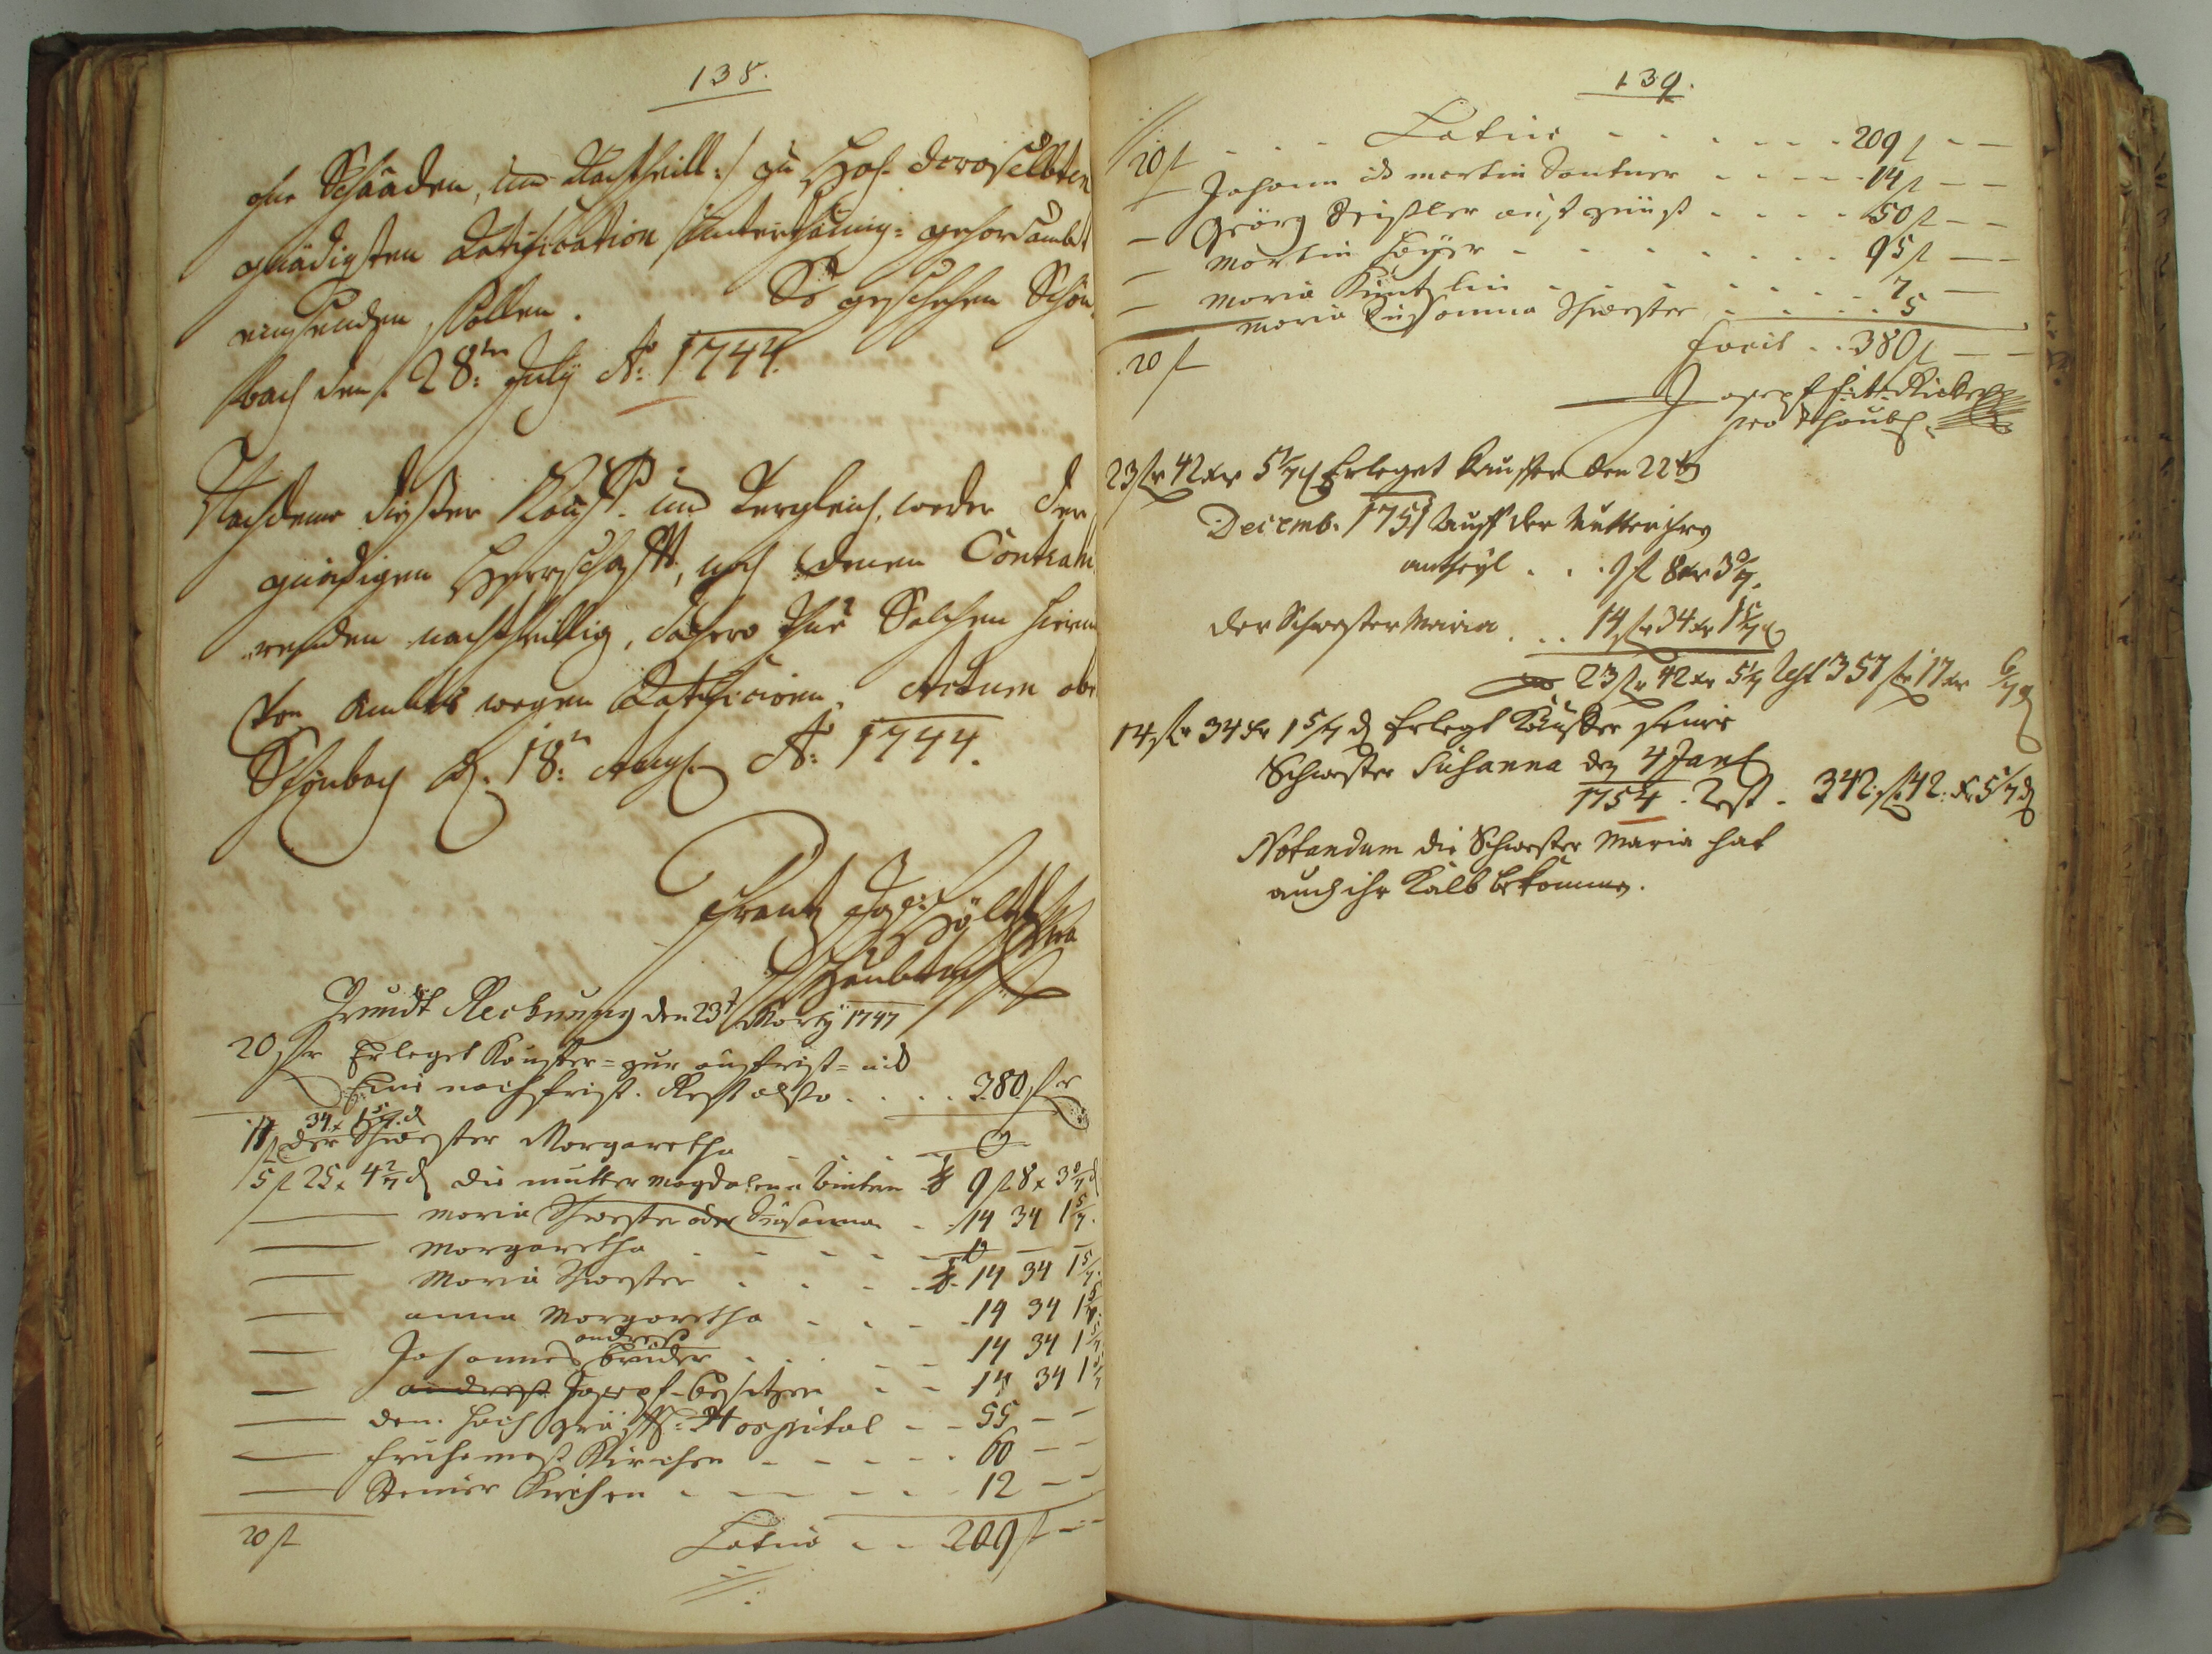 138.
ohne Schaaden, und Nachtheill :/ zu Hoh. deroselbten
gnädigsten Ratification unterthänig= gehorsambst
einsenden sollen. So geschehen Schön
bach den 28:ten July Ao: 1744.
Nachdeme dießer Kauff und Vergleich, weder der
gnädigen Herrschafft, noch denen Contrahi
renden nachtheillig, dahero thue Solchen hiemi
Von Ambts wegen Ratificiren. Actum ob
Schönbach d. 18:n Aug. Ao: 1744.
Frantz Jos:
Grundt Rechnung den 23t Marty 1747
20 fr Erleget Kauffer = zur angfrist = und
Eine nachfrist. Rest also . . . . 380 fr
14 f 34 x 1 5/7 d der Schwester Margaretha - - - 0
5 f 25 x 4 2/7 d die mutter Magdalena 9 f 8 x 3 3/7 d
— Maria Schwester oder Susanna - 14 34 1 5/7
— Margaretha - - - -
— Maria Schwester - - - 14 34 1 5/7
— anna Margaretha - - - 14 34 1 5/7
— Johannes andreß bruder - - - 14 34 1 5/7
— andreß Joseph besitzer - - 14 34 1 5/7
— dem Hoch Gräffl: Hospital - - 55 - -
— fruhemeß Kirchen - - - - 60 - -
— Kirchen - - - - 12 - -
20 f Latus - - 209 f - -
139.
20 f - - - Latus - - - - - 209 f - -
— Johann id martin - - - - 14 f - -
— Geörg - - - - 50 f - -
— Martin - - - - - - 95 f - -
— Maria - - - - - - 7 -
Maria Susanna Schwester - - - - 5
20 f facit . . 380 f - -
Joseph
23 fr 42 xr 5 1/7 d Erleget Kauffer den 22t
Decemb. 1751 auff der Mutter ihre
antheyl . . . 9 f 8 xr 3 3/7.
der Schwester Maria . . . 14 fr 34 xr 1 5/7 d
23 fr 42 xr 5 1/7 Rest 357 fr 17 xr 6/7 d
14 fr 34 xr 1 5/7 d Erlegt Kauffer seine
Schwester Susanna den 4 Jan
1754. Rest . 342 fr 42: xr 5 1/7 d
Notandum die Schwester Maria hat
auch ihr Kalb bekommen.